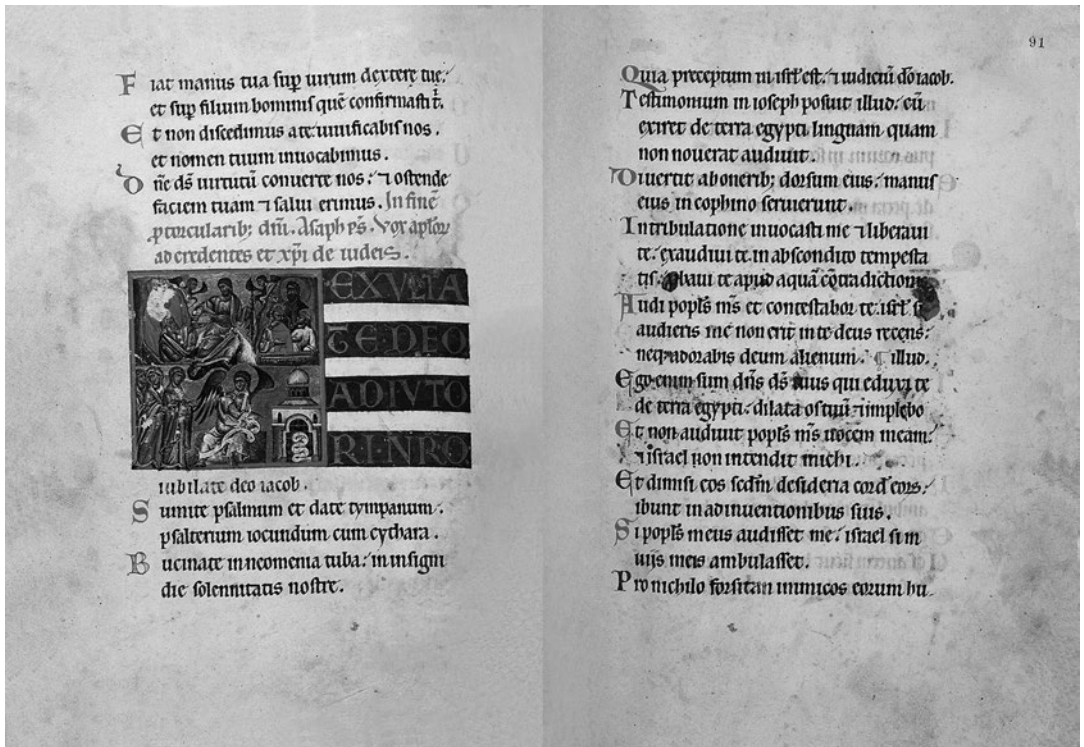 Fiat manus tua sup uirum dextere tue:
et sup filium hominis quē confirmasti t̄.
Et non discedimus a te uiuificabis nos.
et nomen tuum inuocabimus.
Dn̄e ds̄ uirtutū conuerte nos: ⁊ ostende
faciem tuam ⁊ salui erimus. In finē
ꝓ torcularib; dīd. Asaph ps̄. Vox aptōr
ad credentes et xp̄i de iudeis.
EXVLTA
TE DEO
ADIVTO
RI NRO
iubilate deo iacob.
Sumite psalmum et date tympanum.
psalterium iocundum cum cythara.
Bucinate in neomenia tuba: in insigni
die solennitatis nostre.
91
Quia preceptum in isrl̄ est. ⁊ iudiciū dō iacob.
Testimonium in ioseph posuit illud: cū
exiret de terra egypti linguam quam
non nouerat audiuit.
Diuertit ab onerib; dorsum eius: manus
eius in cophino seruierunt.
In tribulatione inuocasti me ⁊ liberaui
te: exaudiui te in abscondito tempesta
tis: ꝓbaui te apud aquā cōtradictionis
Audi popl̄s m̄s et contestabor te: isrl̄ si
audieris me non erit in te deus recens:
neq; adorabis deum alienum. illud.
Ego enim sum dn̄s ds̄ tuus qui eduxi te
de terra egypti: dilata os tuū ⁊ implebo
Et non audiuit popl̄s m̄s uocem meam:
⁊ israel non intendit michi.
Et dimisi eos sedm̄ desideria cord̄ eor̄:
ibunt in adinuentionibus suis.
Si popl̄s meus audisset me: israel si in
uijs meis ambulasset.
Pro nichilo forsitan inimicos eorum hu